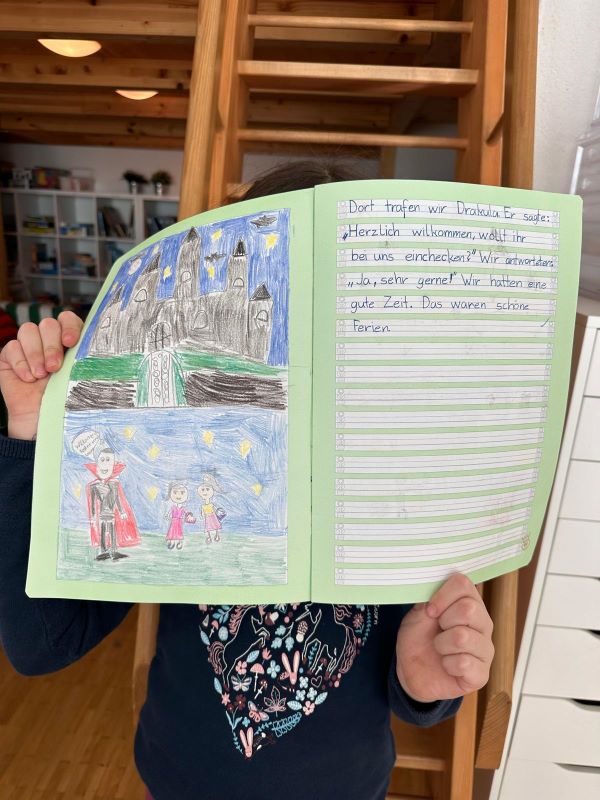 Dort trafen wir Drakula. Er sagte:
„Herzlich willkommen, wollt ihr
bei uns einchecken?" Wir antworteten:
„Ja, sehr gerne!" Wir hatten eine
gute Zeit. Das waren schöne
Ferien.